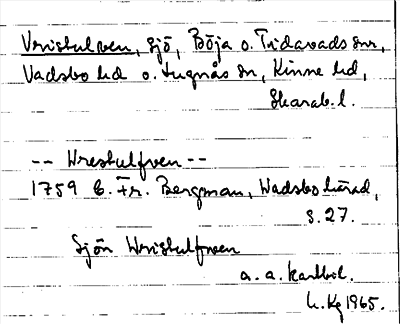 Vristulven, sjö, Böja o. Tidavads snr,
Vadsbo hd o. Lugnås sn, Kinne hd,
Skarab. l.
-- Wrestulfven --
1759 E. Fr. Bergman, Wadsbo härad,
s. 27.
Sjön Wristulfwen
a. a. kartbil.
L. Kg 1965.